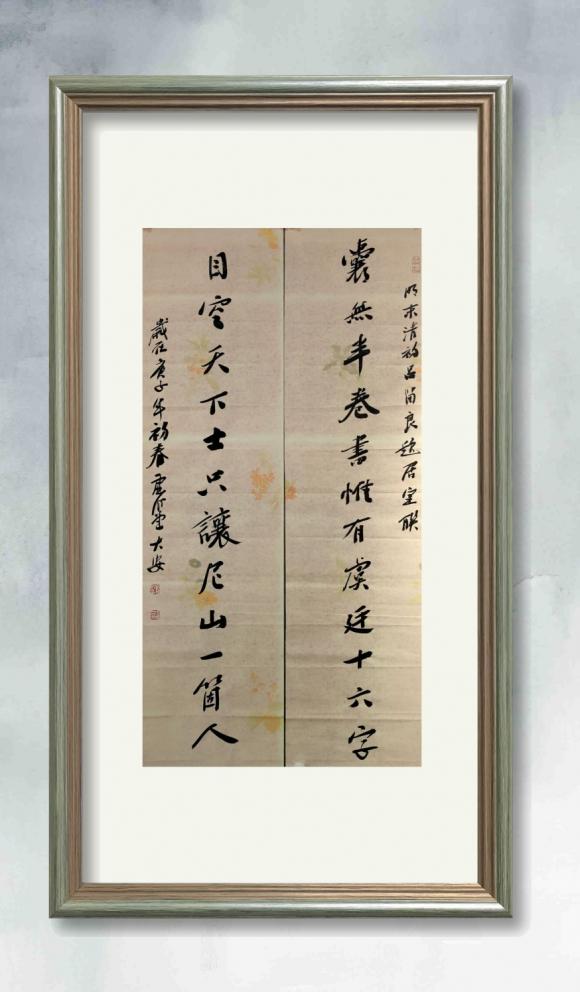 明末清初吕留良題居室聯
囊無半卷書惟有虞廷十六字
目空天下士只讓尼山一箇人
歲在庚子年初春